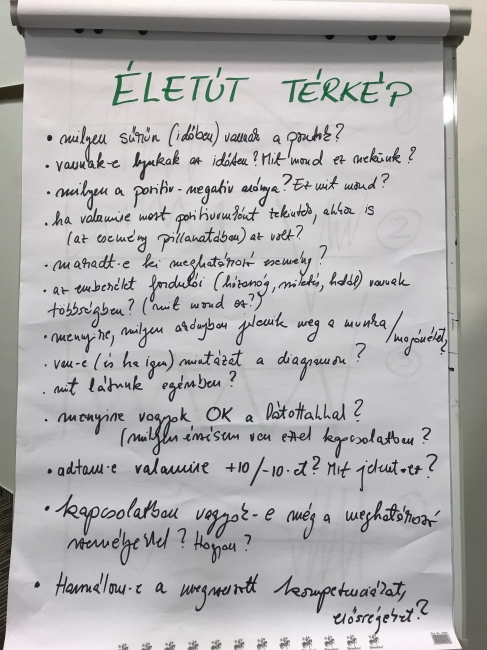 ÉLETÚT TÉRKÉP
• milyen sűrűn (időben) vannak a pontok?
• vannak-e lyukak az időben? Mit mond ez nekünk?
• milyen a pozitív-negatív aránya? Ez mit mond?
• ha valamire most pozitívumként tekintds, akkor is
(az esemény pillanatában) az volt?
• maradt-e ki meghatározó esemény?
• az emberélet fordulói (házasság, születés, halál) vannak
többségben? (mit mond ez?)
• menyire, milyen arányban jelenik meg a munka/magánélet,
• van-e (és ha igen) mintázat a diagramon?
• mit látunk egészben?
• menyire vagyok OK a látottakkal?
(milyen érzésem van ezzel kapcsolatban?
• adtam-e valamire +10/-10-et? Mit jelent ez?
• kapcsolatban vagyok-e még a meghatározó
személyekkel? Hogyan?
• Használom-e a megszerzett kompetenciákat,
erősségeket?